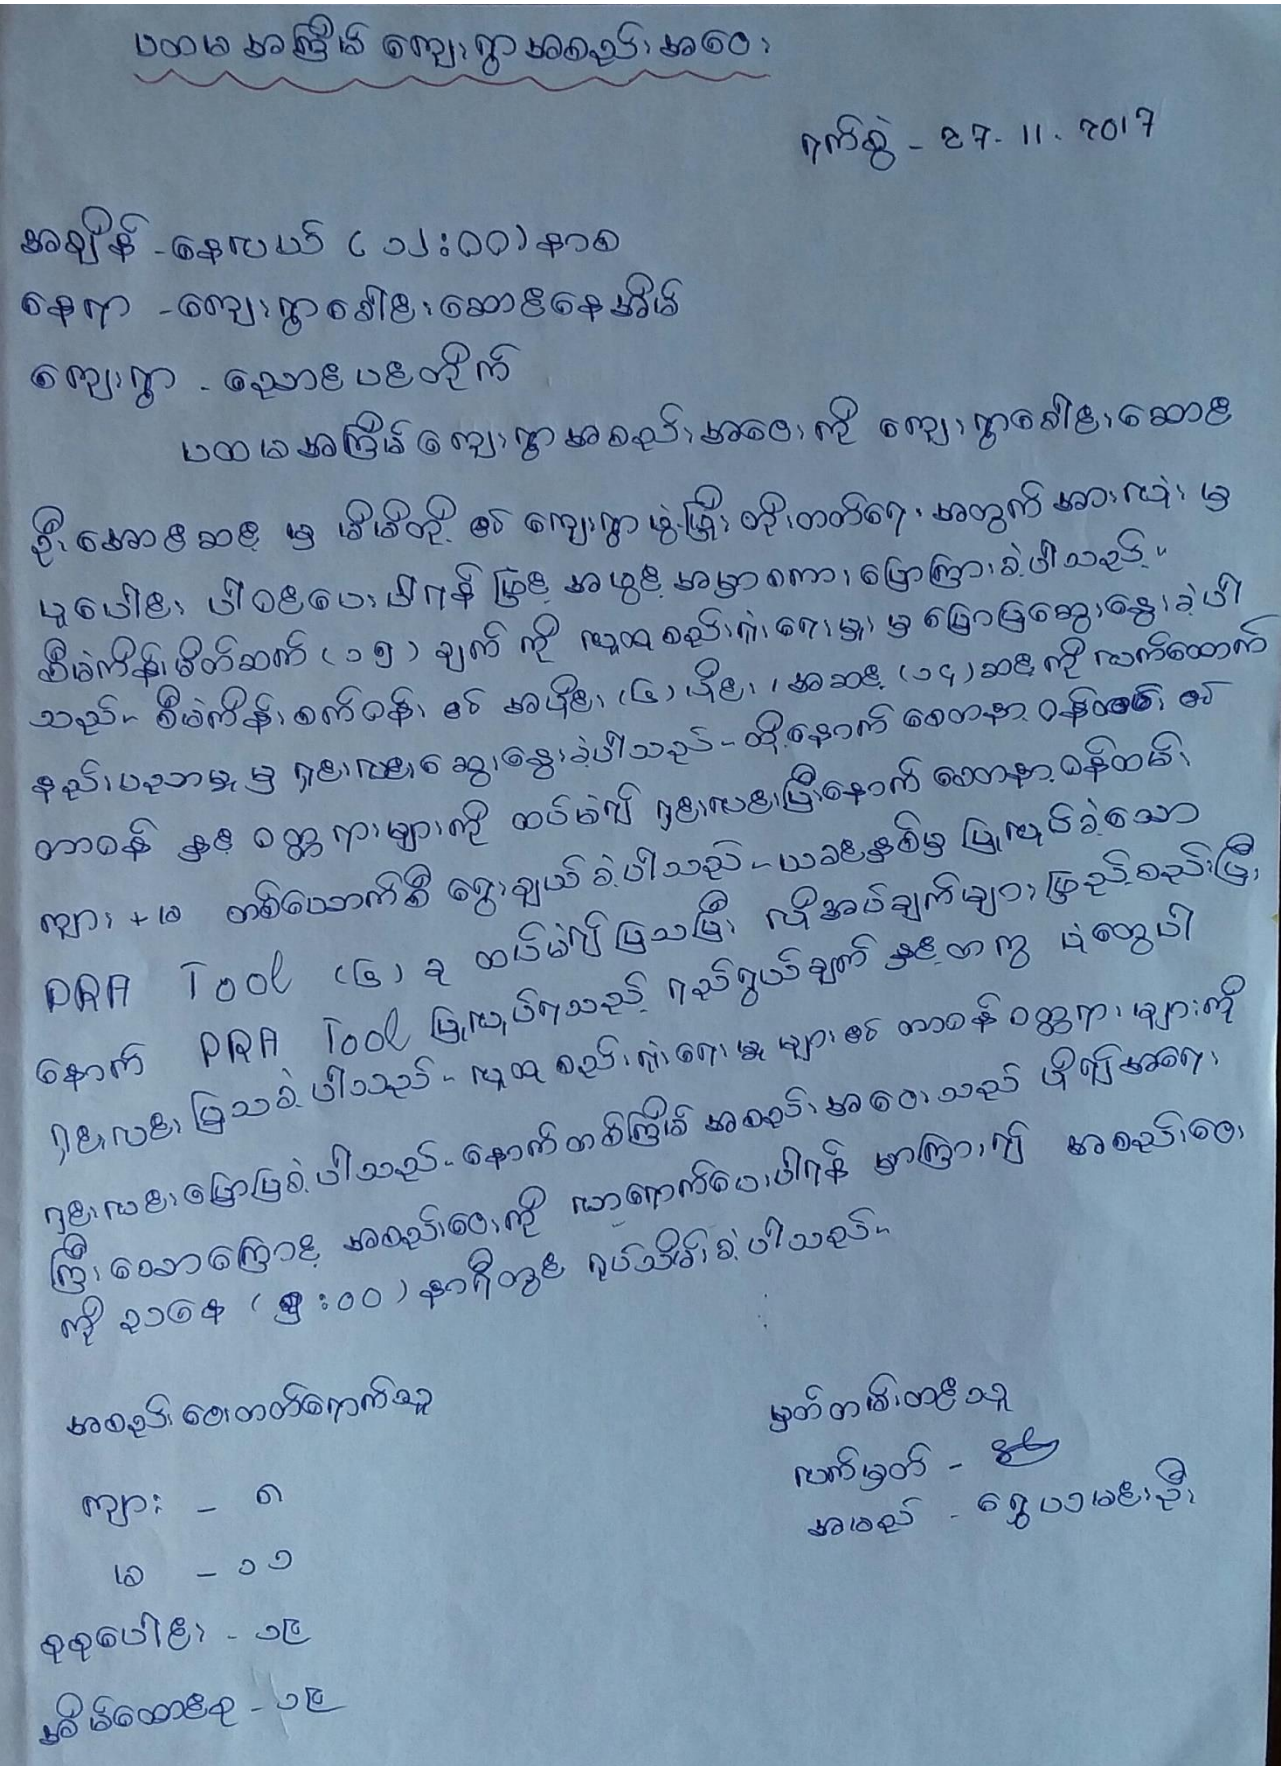 ပထမအကြိမ် ကျေးရွာအစည်းအဝေး
ရက်စွဲ - 27.11.2017
အချိန် - နေ့လယ် (၁၂:၀၀) နာရီ
နေရာ - ကျေးရွာခေါင်းဆောင်နေအိမ်
ကျေးရွာ - ညောင်ပင်တိုက်
ပထမအကြိမ် ကျေးရွာအစည်းအဝေးကို ကျေးရွာခေါင်းဆောင်
ဦးအောင်ဆင့် မှ မိမိတို့ ၏ ကျေးရွာဖွံ့ဖြိုး တိုးတက်ရေး အတွက် အားလုံး မှ
ပူပေါင်း ပါဝင်ပေးပါရန် ဖြင့် အဖွင့် အမှာစကား ပြောကြားခဲ့ပါသည်။
စီမံကိန်းမိတ်ဆက် (၁၅) ချက် ကို လူထုစည်းရုံးရေးမှူး မှ ပြောပြဆွေးနွေးခဲ့ပါ
သည်။ စီမံကိန်း စက်ဝန်း ၏ အပိုင်း (၄) ပိုင်း ၊ အဆင့် (၁၄) ဆင့် ကို လက်ထောက်
နည်းပညာမှူး မှ ရှင်းလင်းဆွေးနွေးခဲ့ပါသည်။ ထို့နောက် စေတနာ့ ဝန်ထမ်း ၏
တာဝန် နှင့် ဝတ္တရားများကို ထပ်မံ၍ ရှင်းလင်းပြီးနောက် စေတနာ့ ဝန်ထမ်း
ကျား + မ တစ်ယောက်စီ ရွေးချယ်ခဲ့ပါသည်။ ယခင်နှစ်မှ ပြုလုပ်ခဲ့သော
PRA Tool (၄) ခု ထပ်မံ၍ ပြသပြီး လိုအပ်ချက်များ ဖြည့်စည်းပြီး
နောက် PRA Tool ပြုလုပ်ရသည့် ရည်ရွယ်ချက် နှင့်တကွ ပုံတွေပါ
ရှင်းလင်း ပြသခဲ့ပါသည်။ လူထုစည်းရုံးရေးမှူးများ ၏ တာဝန် ဝတ္တရားများကို
ရှင်းလင်းပြောပြခဲ့ပါသည်။ နောက်တစ်ကြိမ် အစည်းအဝေးသည် ပို၍အရေး
ကြီးသောကြောင့် အစည်းဝေးကို လာရောက်ပေးပါရန် မှာကြား၍ အစည်းဝေး
ကို ညနေ ( :၀၀) နာရီတွင် ရုပ်သိမ်းခဲ့ပါသည်။
အစည်းဝေးတတ်ရောက်သူ
မှတ်တမ်းတင်သူ
လက်မှတ် -
ကျား - ၈
အမည် - ရွှေယမင်းဦး
မ - ၁၁
စုစုပေါင်း - ၁၉
အိမ်ထောင်စု - ၁၉